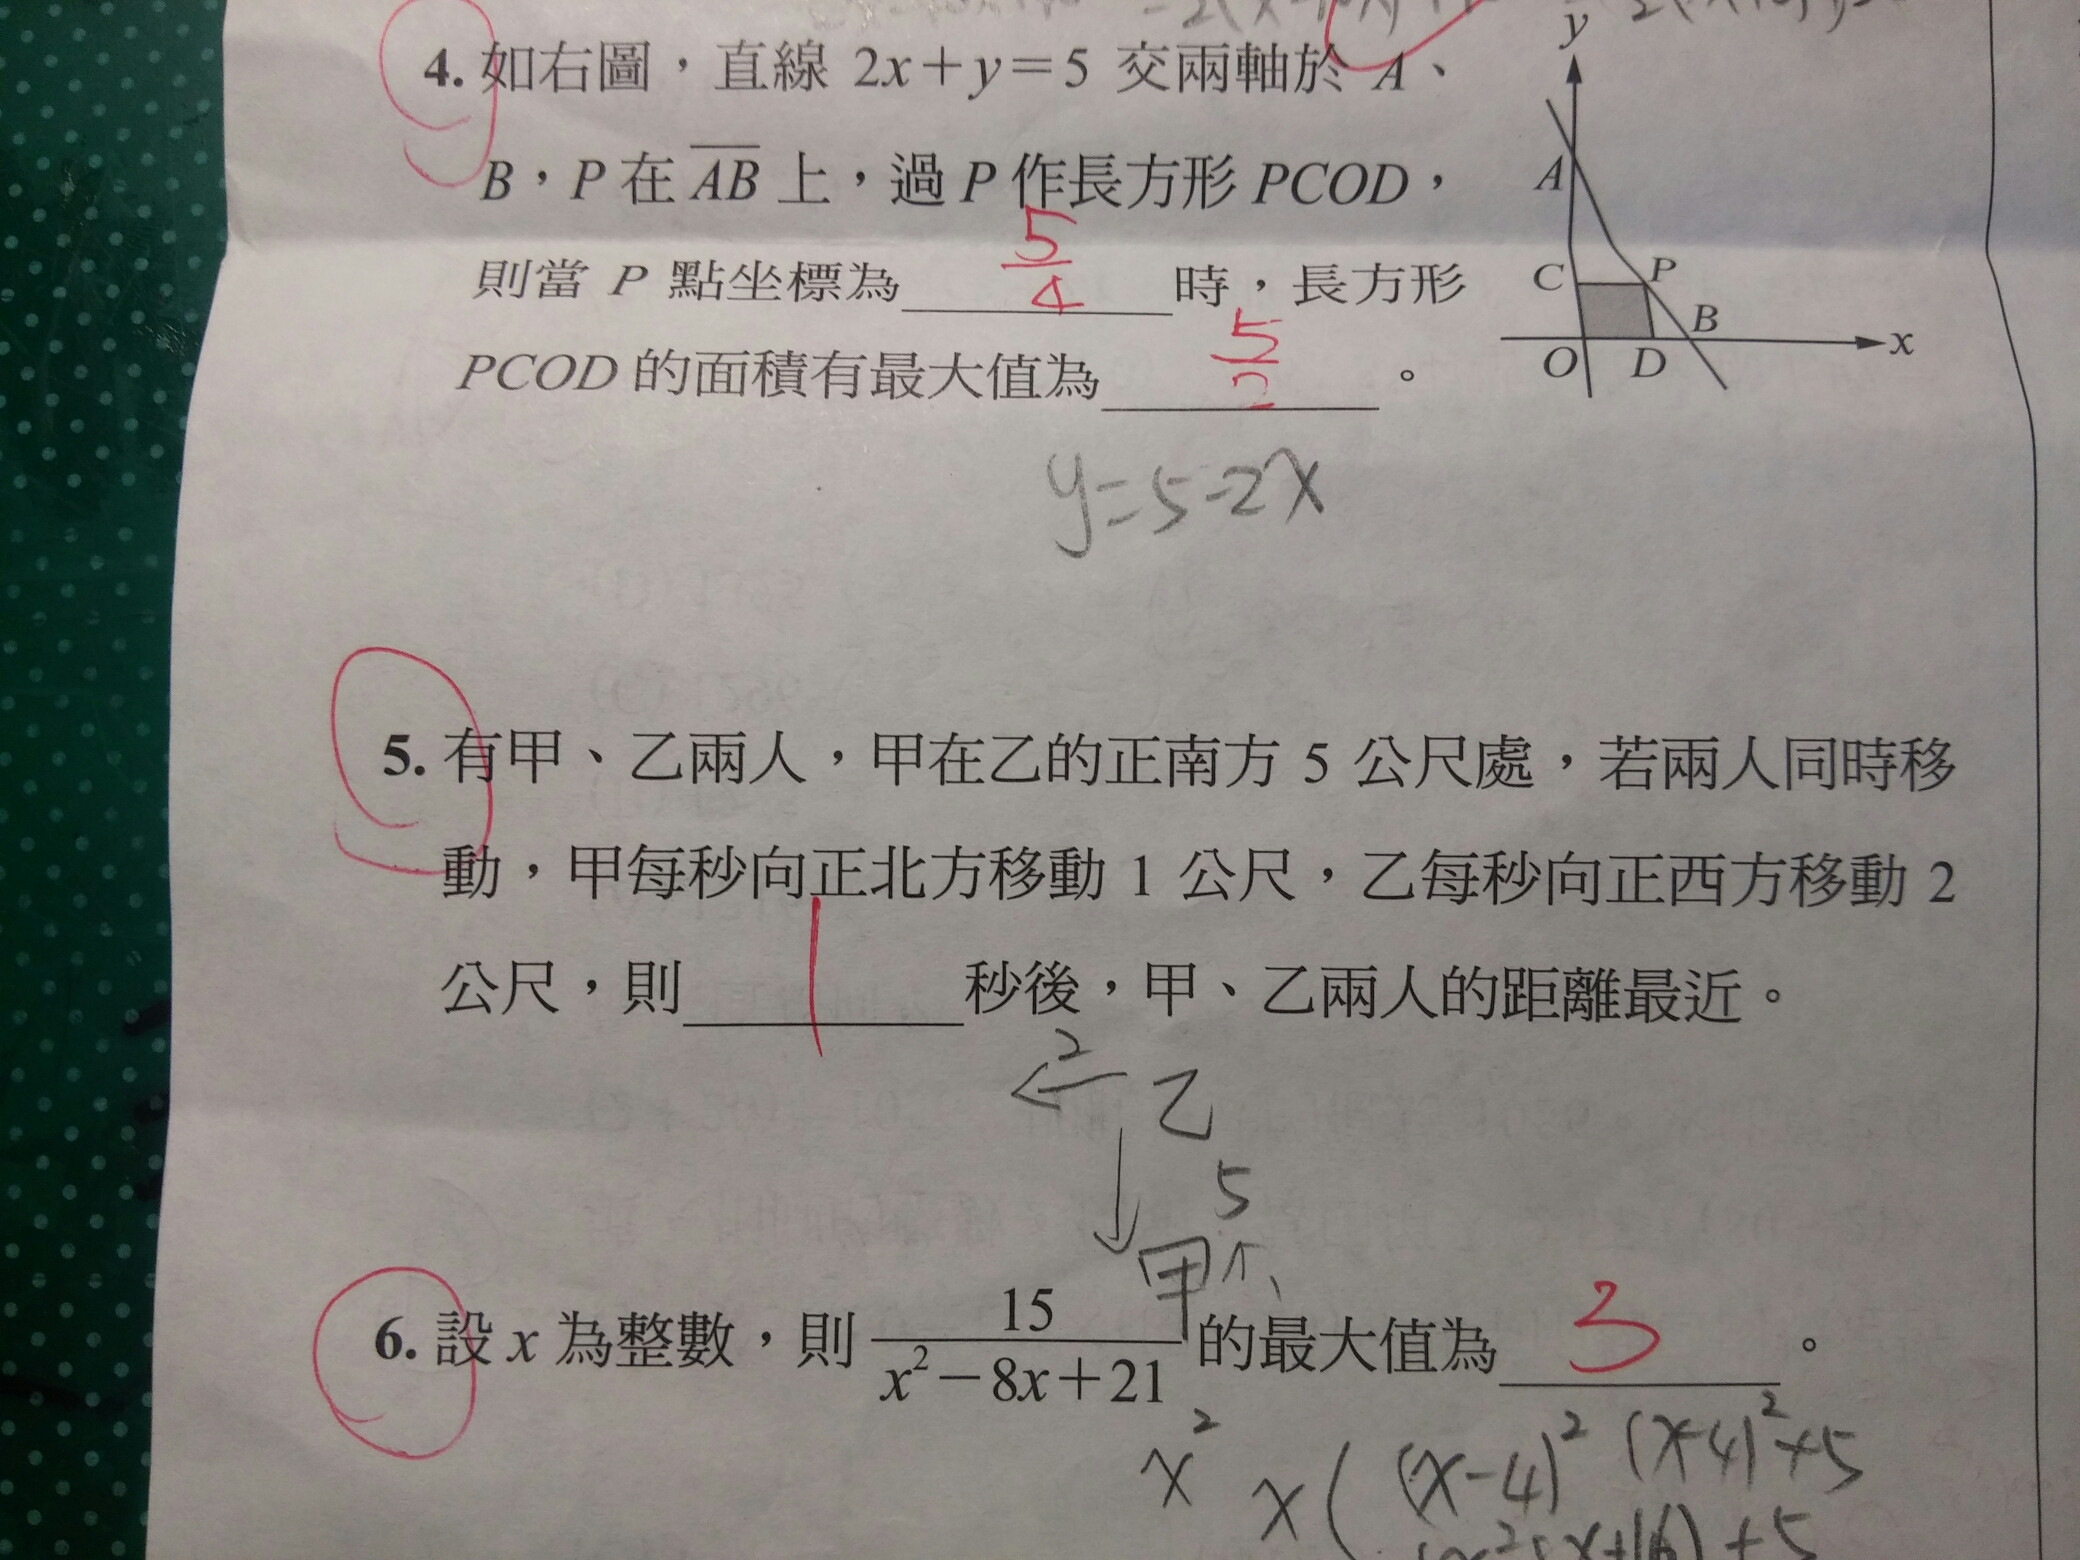 4. 如右圖，直線 2x+y=5 交兩軸於 A、
B，P 在 AB 上，過 P 作長方形 PCOD，
則當 P 點坐標為 5/4 時，長方形
PCOD 的面積有最大值為 5/2 。
y
A
C
P
B
O
D
x
y=5-2x
5. 有甲、乙兩人，甲在乙的正南方 5 公尺處，若兩人同時移
動，甲每秒向正北方移動 1 公尺，乙每秒向正西方移動 2
公尺，則 1 秒後，甲、乙兩人的距離最近。
2
← 乙
↓ 5
甲↑
6. 設 x 為整數，則 15/(x²-8x+21) 的最大值為 3 。
x² x( (x-4)² (x-4)²+5